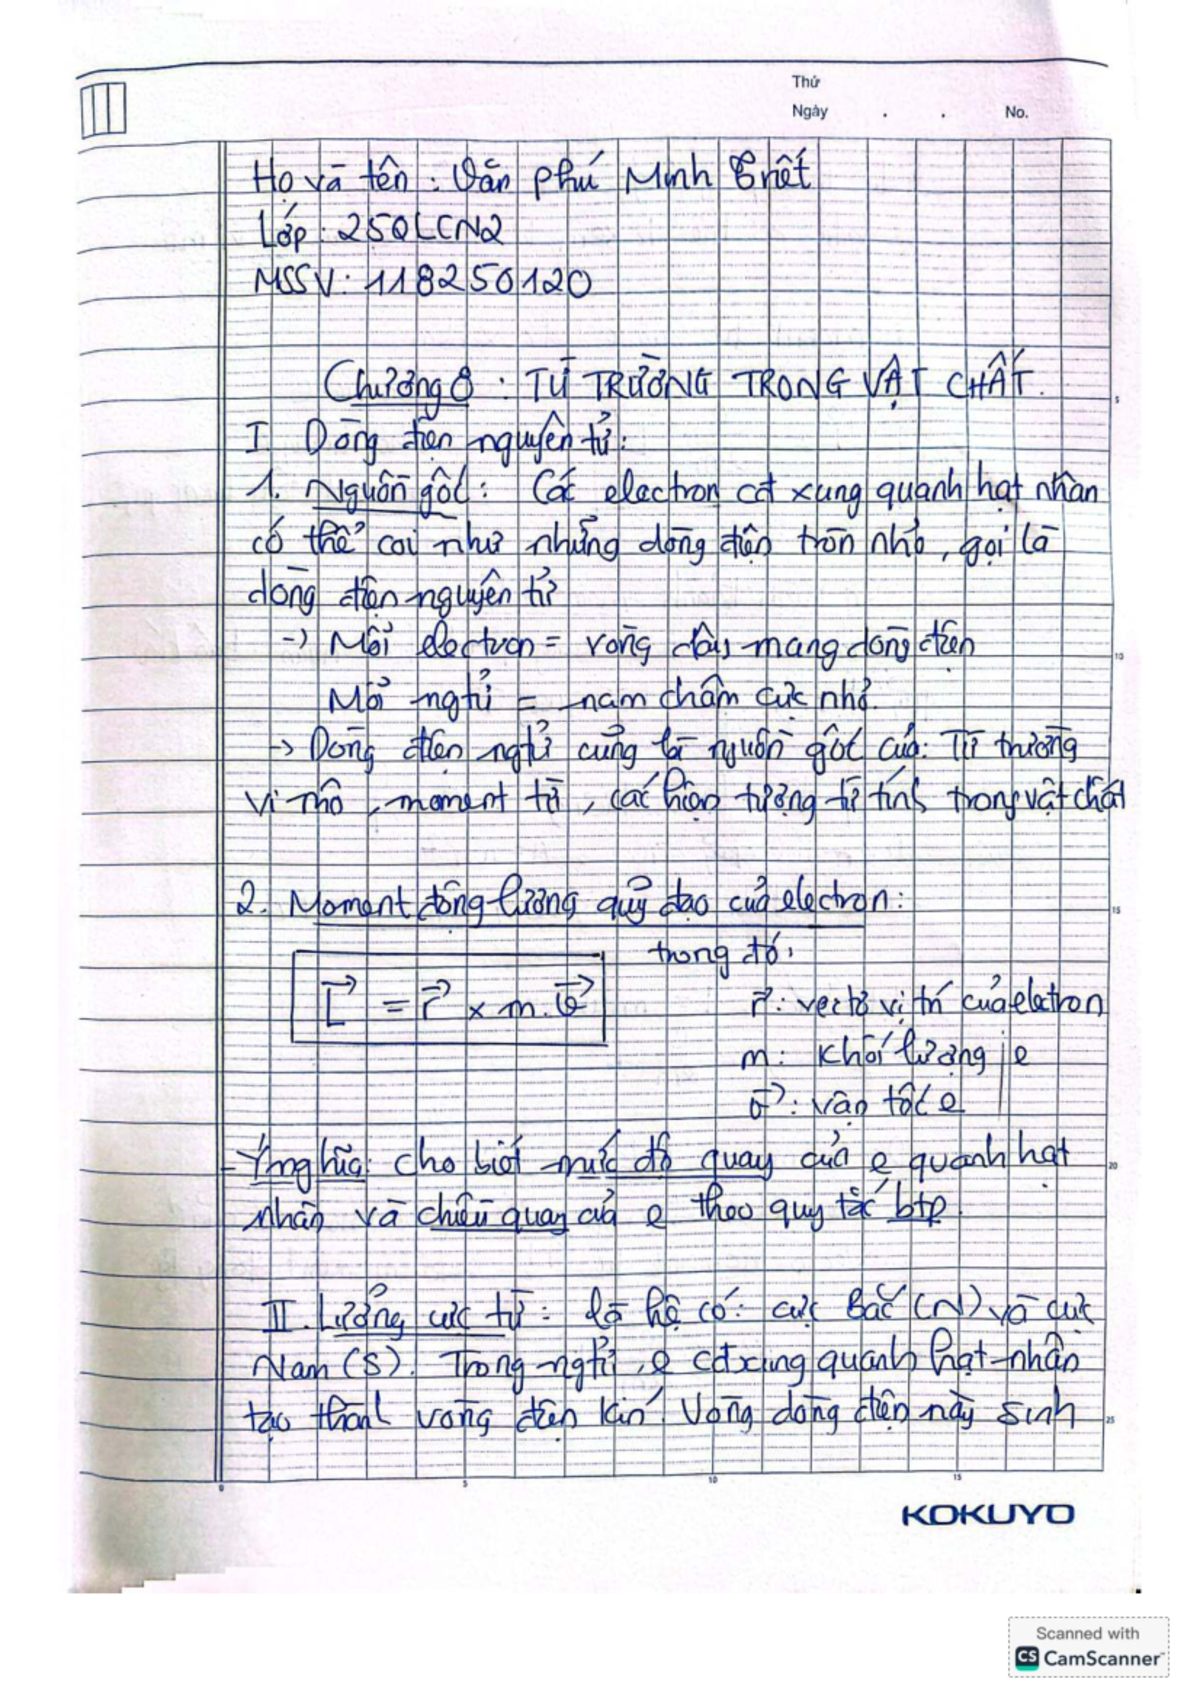 Thứ
Ngày . . No.
Họ và tên : Văn Phú Minh Triết
Lớp : 25QLCN2
MSSV : 118250120
Chương 8 : TỪ TRƯỜNG TRONG VẬT CHẤT.
I. Dòng điện nguyên tử :
1. Nguồn gốc : Các electron cđ xung quanh hạt nhân
có thể coi như những dòng điện tròn nhỏ, gọi là
dòng điện nguyên tử
-> Mỗi electron = vòng dây mang dòng điện
Mỗi ngtử = nam châm cực nhỏ.
-> Dòng điện ngtử cũng là nguồn gốc của : Từ trường
vi mô, moment từ, các hiện tượng từ tính trong vật chất
2. Moment động lượng quỹ đạo của electron :
trong đó,
L⃗ = r⃗ x m.v⃗
r⃗ : vectơ vị trí của electron
m : khối lượng e
v⃗ : vận tốc e
- Ý nghĩa : cho biết mức độ quay của e quanh hạt
nhân và chiều quay của e theo quy tắc btp.
II. Lưỡng cực từ : là hệ có : cực Bắc (N) và cực
Nam (S). Trong ngtử, e cđ xung quanh hạt nhân
tạo thành vòng điện kín. Vòng dòng điện này sinh
5
10
15
20
25
0 5 10 15
KOKUYO
Scanned with
CS CamScanner